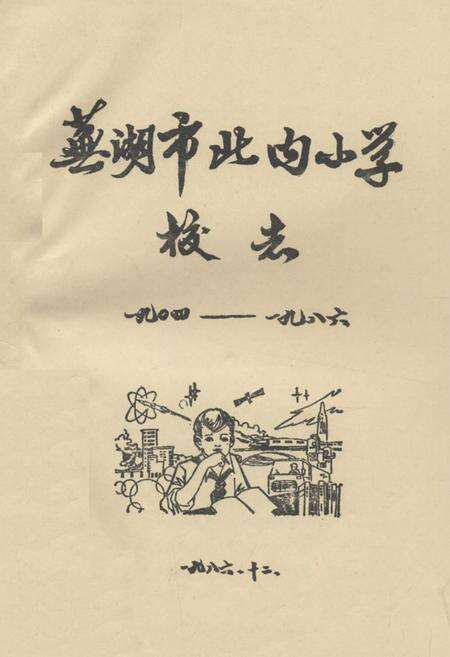 蕪湖市北内小学
校志
一九〇四——一九八六
一九八六.十二.